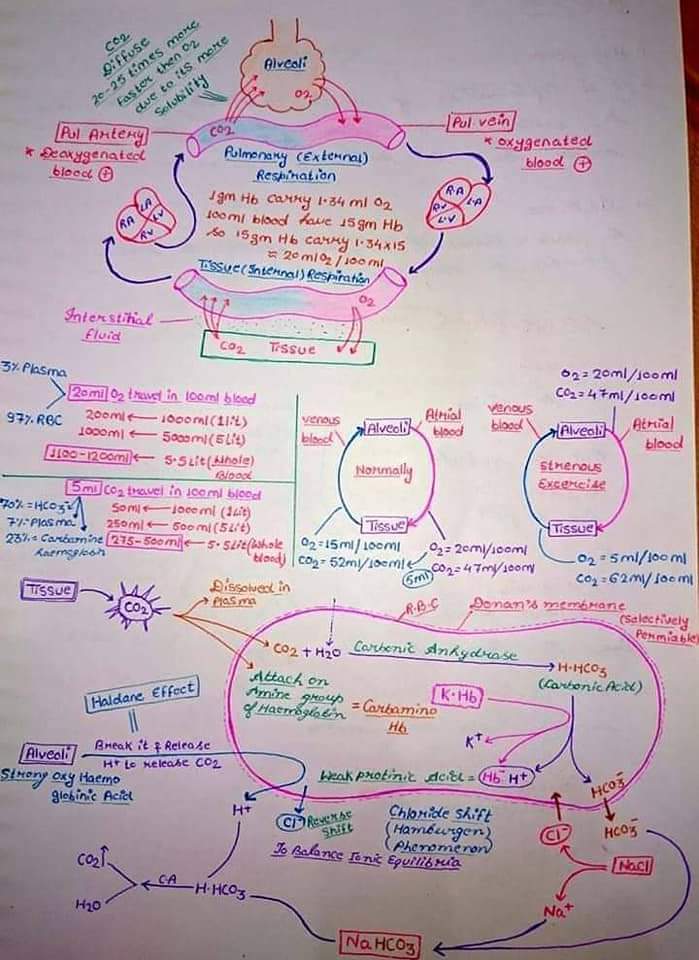 CO2
Diffuse
20-25 times more
faster then O2
due to its more
Solubility
Alveoli
O2
CO2
Pul Artery
* Deoxygenated
blood (+)
Pul vein
* oxygenated
blood (+)
Pulmonary (External)
Respiration
1gm Hb carry 1.34 ml O2
100ml blood have 15gm Hb
So 15gm Hb carry 1.34x15
≈ 20ml O2/100ml
RA
LA
L.V
RV
R.A
L.A
R.V
L.V
Tissue (Internal) Respiration
O2
Interstitial
fluid
CO2 Tissue
3% Plasma
97% RBC
20ml O2 travel in 100ml blood
200ml ← 1000ml (1Lit)
1000ml ← 5000ml (5Lit)
1100-1200ml ← 5.5Lit (Whole)
Blood
5ml CO2 travel in 100ml blood
70% = HCO3-
7% Plasma
23% = Carbamino
haemoglobin
50ml ← 1000ml (1Lit)
250ml ← 500ml (5Lit)
275-500ml ← 5.5Lit (Whole
blood)
venous
blood
Alveoli
Atrial
blood
Normally
Tissue
O2 = 15ml/100ml
CO2 = 52ml/100ml
5ml
O2 = 20ml/100ml
CO2 = 47ml/100ml
O2 = 20ml/100ml
CO2 = 47ml/100ml
venous
blood
Alveoli
Atrial
blood
Strenous
Excercise
Tissue
O2 = 5ml/100ml
CO2 = 62ml/100ml
Tissue
CO2
Dissolved in
Plasma
R.B.C
Donan's membrane
(Selectively
Permiable)
CO2 + H2O Carbonic Anhydrase → H.HCO3
(Carbonic Acid)
Attach on
Amine group
of Haemoglobin = Carbamino
Hb
K.Hb
K+
Weak protinic Acid = Hb- H+
HCO3-
HCO3-
Haldane Effect
Alveoli
Break it & Release
H+ to release CO2
Strong oxy Haemo
globinic Acid
H+
Cl- Reverse
Shift
Chloride Shift
(Hamburgen)
(Pheromeron)
To Balance Ionic Equilibria
Cl-
NaCl
Na+
CO2↑
H2O
C.A
H.HCO3
NaHCO3